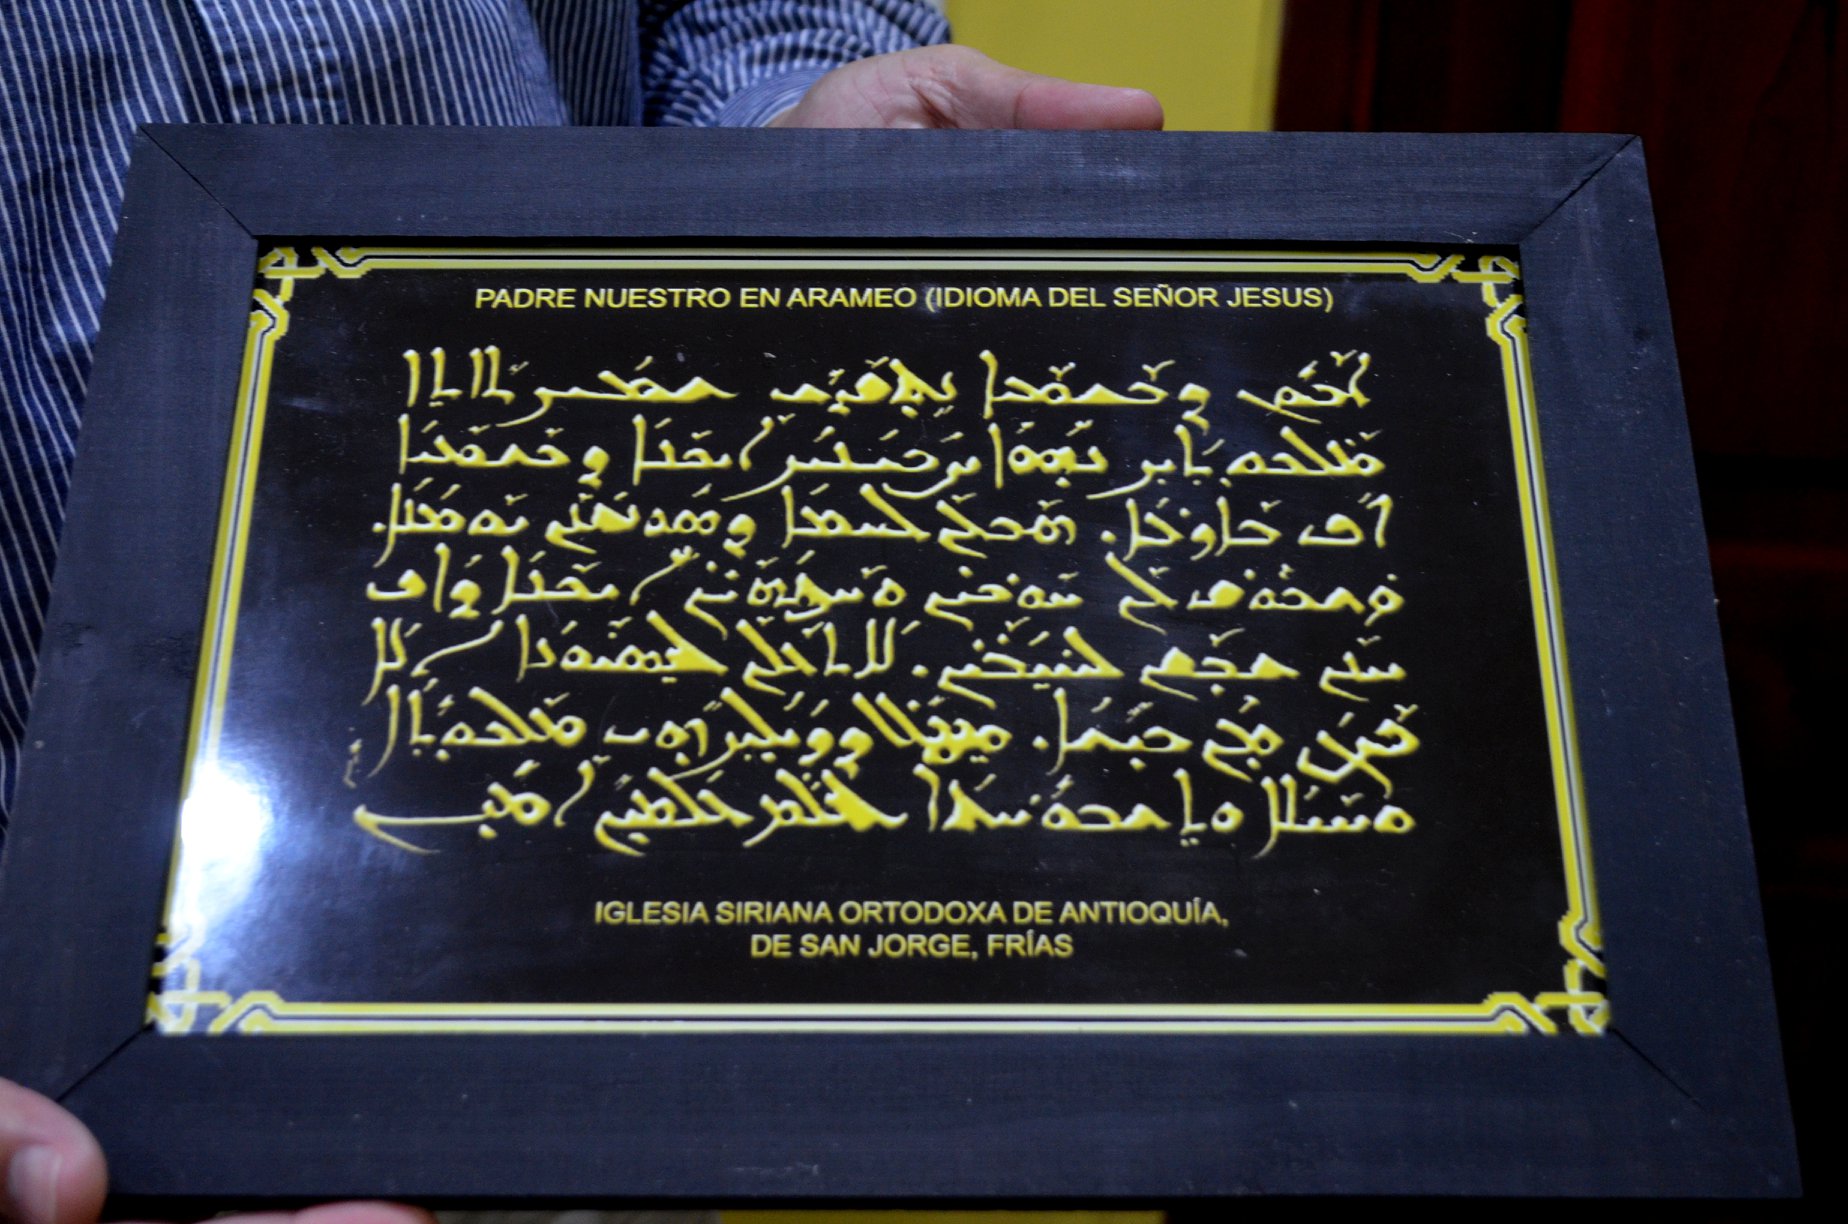 PADRE NUESTRO EN ARAMEO (IDIOMA DEL SEÑOR JESUS)
ܐܒܘܢ ܕܒܫܡܝܐ ܢܬܩܕܫ ܫܡܟ ܬܐܬܐ
ܡܠܟܘܬܟ ܢܗܘܐ ܨܒܝܢܟ ܐܝܟܢܐ ܕܒܫܡܝܐ
ܐܦ ܒܐܪܥܐ. ܗܒ ܠܢ ܠܚܡܐ ܕܣܘܢܩܢܢ ܝܘܡܢܐ.
ܘܫܒܘܩ ܠܢ ܚܘܒܝܢ ܘܚܛܗܝܢ ܐܝܟܢܐ ܕܐܦ
ܚܢܢ ܫܒܩܢ ܠܚܝܒܝܢ. ܠܐ ܬܥܠܢ ܠܢܣܝܘܢܐ ܐܠܐ
ܦܨܢ ܡܢ ܒܝܫܐ. ܡܛܠ ܕܕܝܠܟ ܗܝ ܡܠܟܘܬܐ
ܘܚܝܠܐ ܘܬܫܒܘܚܬܐ ܠܥܠܡ ܥܠܡܝܢ ܐܡܝܢ
IGLESIA SIRIANA ORTODOXA DE ANTIOQUÍA,
DE SAN JORGE, FRÍAS